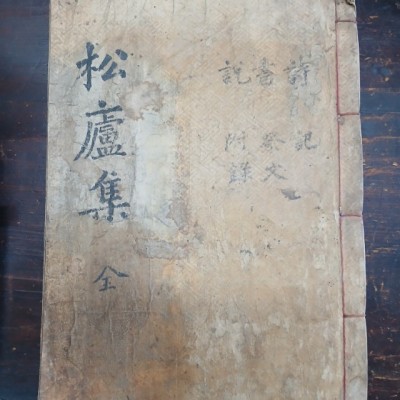 詩 記
書 祭文
說 附錄
松廬集 全